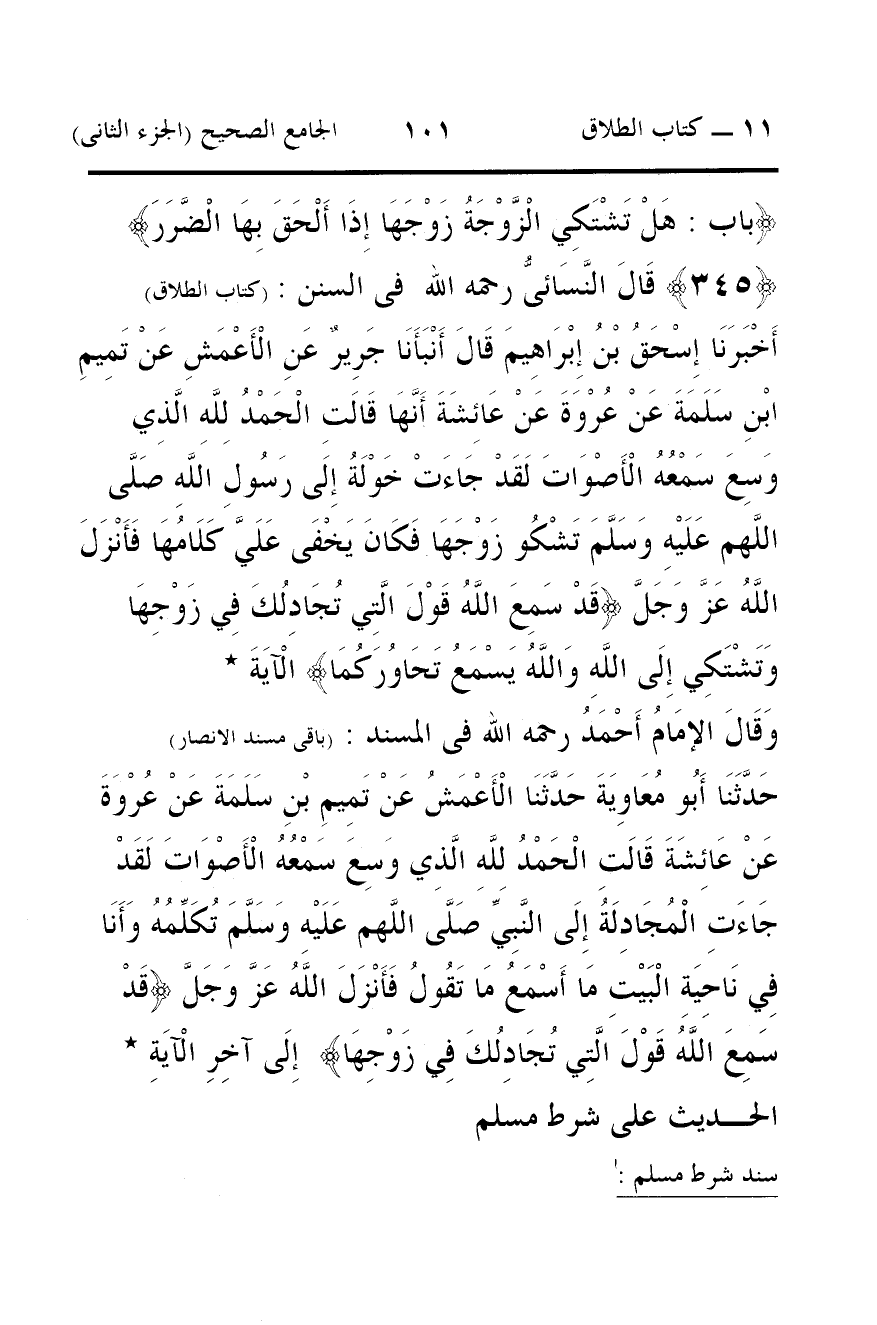 ١١ ـ كتاب الطلاق ١٠١ الجامع الصحيح (الجزء الثانى)
﴿باب : هَلْ تَشْتَكِي الْزَّوْجَةُ زَوْجَهَا إِذَا أَلْحَقَ بِهَا الْضَّرَرَ﴾
﴿٣٤٥﴾ قَالَ النَّسَائىُّ رحمه الله فى السنن : (كتاب الطلاق)
أَخْبَرَنَا إِسْحَقُ بْنُ إِبْرَاهِيمَ قَالَ أَنْبَأَنَا جَرِيرٌ عَنِ الْأَعْمَشِ عَنْ تَمِيمِ
ابْنِ سَلَمَةَ عَنْ عُرْوَةَ عَنْ عَائِشَةَ أَنَّهَا قَالَتِ الْحَمْدُ لِلَّهِ الَّذِي
وَسِعَ سَمْعُهُ الْأَصْوَاتَ لَقَدْ جَاءَتْ خَوْلَةُ إِلَى رَسُولِ اللَّهِ صَلَّى
اللَّهم عَلَيْهِ وَسَلَّمَ تَشْكُو زَوْجَهَا فَكَانَ يَخْفَى عَلَيَّ كَلَامُهَا فَأَنْزَلَ
اللَّهُ عَزَّ وَجَلَّ ﴿قَدْ سَمِعَ اللَّهُ قَوْلَ الَّتِي تُجَادِلُكَ فِي زَوْجِهَا
وَتَشْتَكِي إِلَى اللَّهِ وَاللَّهُ يَسْمَعُ تَحَاوُرَكُمَا﴾ الْآيَةَ *
وَقَالَ الإِمَامُ أَحْمَدُ رحمه الله فى المسند : (باقى مسند الانصار)
حَدَّثَنَا أَبُو مُعَاوِيَةَ حَدَّثَنَا الْأَعْمَشُ عَنْ تَمِيمِ بْنِ سَلَمَةَ عَنْ عُرْوَةَ
عَنْ عَائِشَةَ قَالَتِ الْحَمْدُ لِلَّهِ الَّذِي وَسِعَ سَمْعُهُ الْأَصْوَاتَ لَقَدْ
جَاءَتِ الْمُجَادِلَةُ إِلَى النَّبِيِّ صَلَّى اللَّهم عَلَيْهِ وَسَلَّمَ تُكَلِّمُهُ وَأَنَا
فِي نَاحِيَةِ الْبَيْتِ مَا أَسْمَعُ مَا تَقُولُ فَأَنْزَلَ اللَّهُ عَزَّ وَجَلَّ ﴿قَدْ
سَمِعَ اللَّهُ قَوْلَ الَّتِي تُجَادِلُكَ فِي زَوْجِهَا﴾ إِلَى آخِرِ الْآيَةِ *
الحـــديث على شرط مسلم
سند شرط مسلم :١